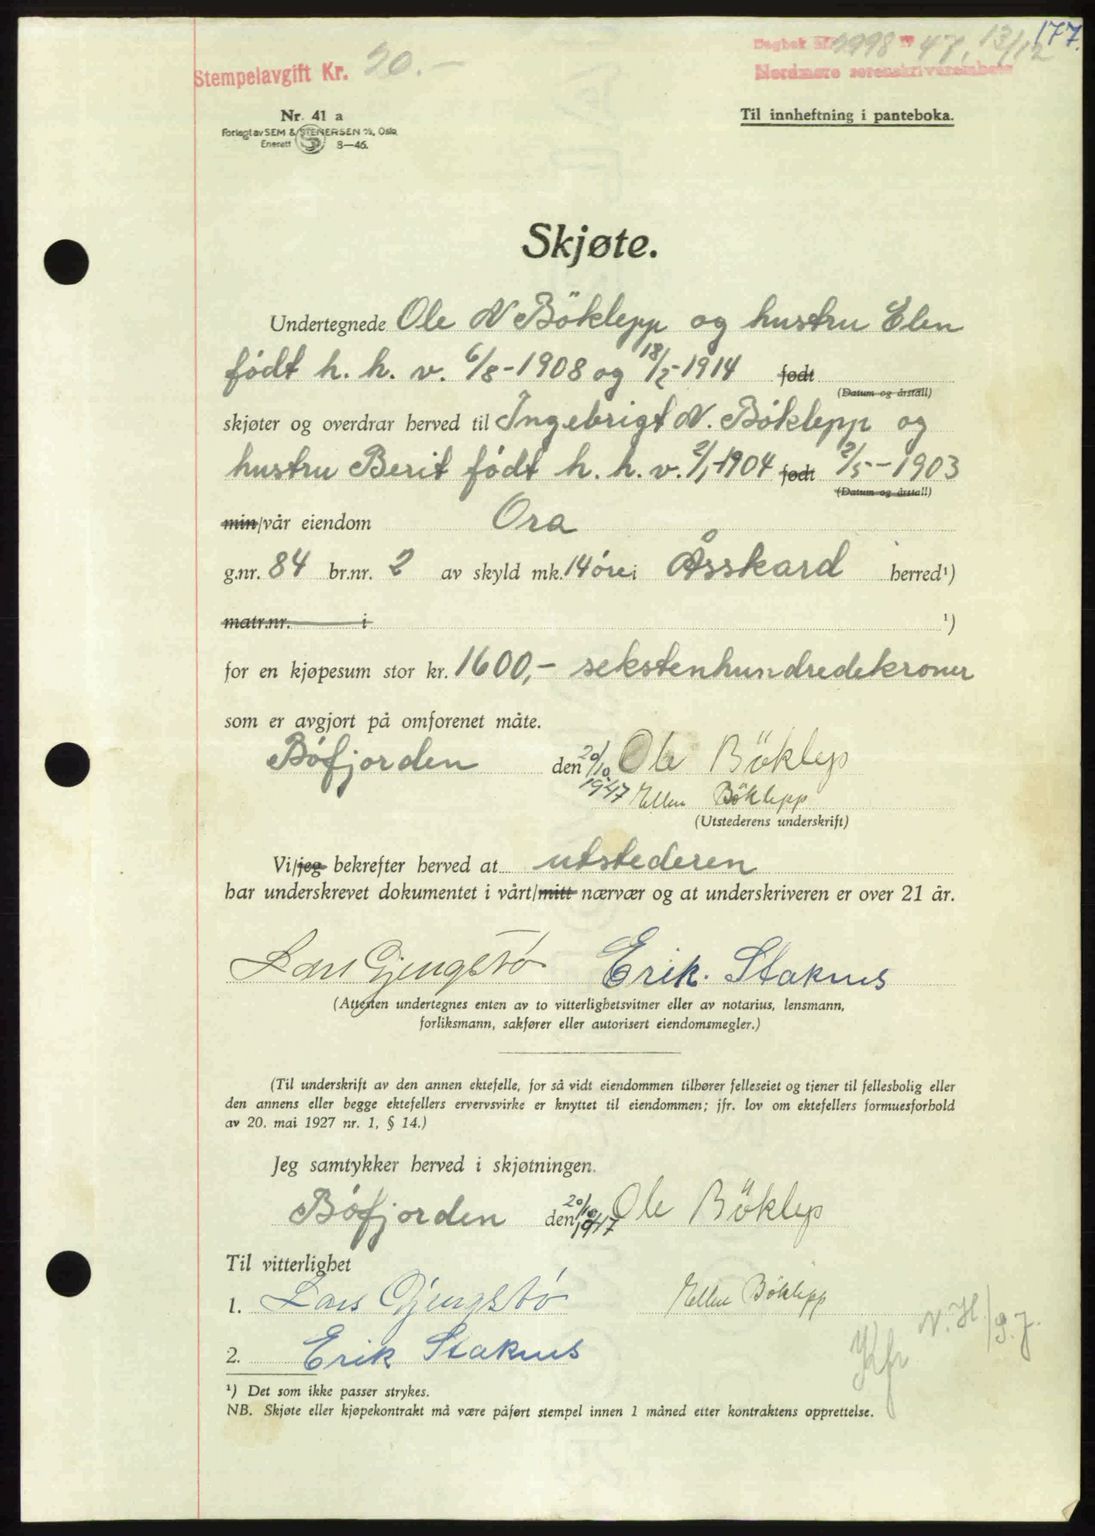 177.
Stempelavgift Kr. 20.-
Dagbok Nr. 2998 19 47, 13/12
Nordmøre sorenskriverembete
Nr. 41 a
Forlagt av SEM & STENERSEN A/S, Oslo
Enerett 8—46.
Til innheftning i panteboka.
Skjøte.
Undertegnede Ole N Böklepp og hustru Elen
født h. h. v. 6/8-1908 og 18/2-1914 født
(Datum og årstall)
skjøter og overdrar herved til Ingebrigt N. Böklepp og
hustru Berit født h. h. v. 2/1-1904 født 2/5-1903
(Datum og årstall)
min/vår eiendom Ora
g.nr. 84 br.nr. 2 av skyld mk. 14 øre i Åsskard herred¹)
matr.nr. i ¹)
for en kjøpesum stor kr. 1600,- sekstenhundredekroner
som er avgjort på omforenet måte.
Bøfjorden den 20/10 1947 Ole Böklep
Ellen Böklepp
(Utstederens underskrift)
Vi/jeg bekrefter herved at utstederen
har underskrevet dokumentet i vårt/mitt nærvær og at underskriveren er over 21 år.
Lars Gjengstø Erik Staknes
(Attesten undertegnes enten av to vitterlighetsvitner eller av notarius, lensmann,
forliksmann, sakfører eller autorisert eiendomsmegler.)
(Til underskrift av den annen ektefelle, for så vidt eiendommen tilhører felleseiet og tjener til fellesbolig eller
den annens eller begge ektefellers ervervsvirke er knyttet til eiendommen; jfr. lov om ektefellers formuesforhold
av 20. mai 1927 nr. 1, § 14.)
Jeg samtykker herved i skjøtningen.
Bøfjorden den 20/10 1947 Ole Böklep
Til vitterlighet
1. Lars Gjengstø Ellen Böklepp
2. Erik Staknes
Kfr N. H./g.j.
¹) Det som ikke passer strykes.
NB. Skjøte eller kjøpekontrakt må være påført stempel innen 1 måned etter kontraktens opprettelse.